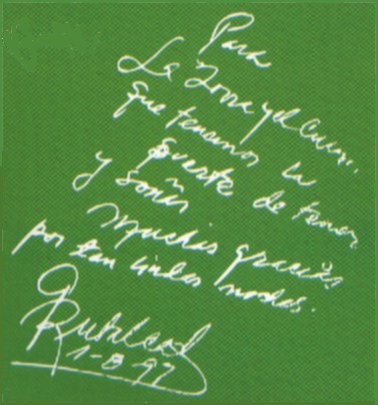 Para
La Zorra y el Cuervo.
que tenemos la
suerte de tener
y soñar
Muchas gracias
por tan lindas noches.
1-8-97